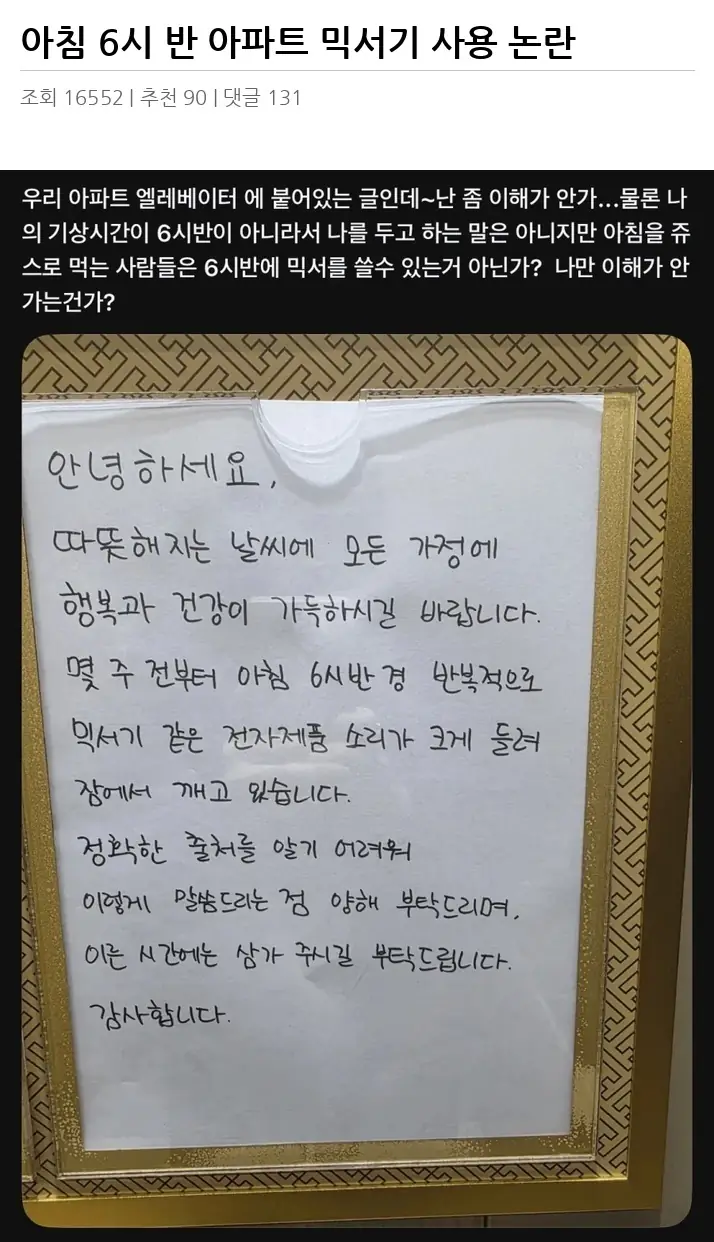 아침 6시 반 아파트 믹서기 사용 논란
조회 16552 | 추천 90 | 댓글 131
우리 아파트 엘레베이터 에 붙어있는 글인데~난 좀 이해가 안가...물론 나
의 기상시간이 6시반이 아니라서 나를 두고 하는 말은 아니지만 아침을 쥬
스로 먹는 사람들은 6시반에 믹서를 쓸수 있는거 아닌가? 나만 이해가 안
가는건가?
안녕하세요,
따뜻해지는 날씨에 모든 가정에
행복과 건강이 가득하시길 바랍니다.
몇 주 전부터 아침 6시반경 반복적으로
믹서기 같은 전자제품 소리가 크게 들려
잠에서 깨고 있습니다.
정확한 출처를 알기 어려워
이렇게 말씀드리는 점 양해 부탁드리며,
이른 시간에는 삼가 주시길 부탁드립니다.
감사합니다.